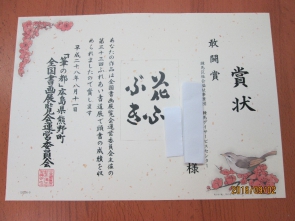 賞状
敢闘賞
様
花ふ
ぶき
あなたの作品は全国書画展覧会運営委員会主催の
第三十三回ふれあい書道展で頭書の成績を収
められましたので賞します
平成二十八年八月十一日
「筆の都」広島県熊野町
全国書画展覧会運営委員会